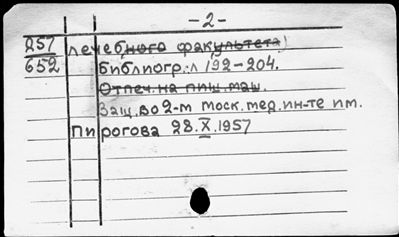 -2-
257 лечебного факультета)
652 Библиогр.: л 192-204.
Отпеч. на пиш. маш.
Защ. во 2-м моск. мед. ин-те им.
Пирогова 28.X.1957